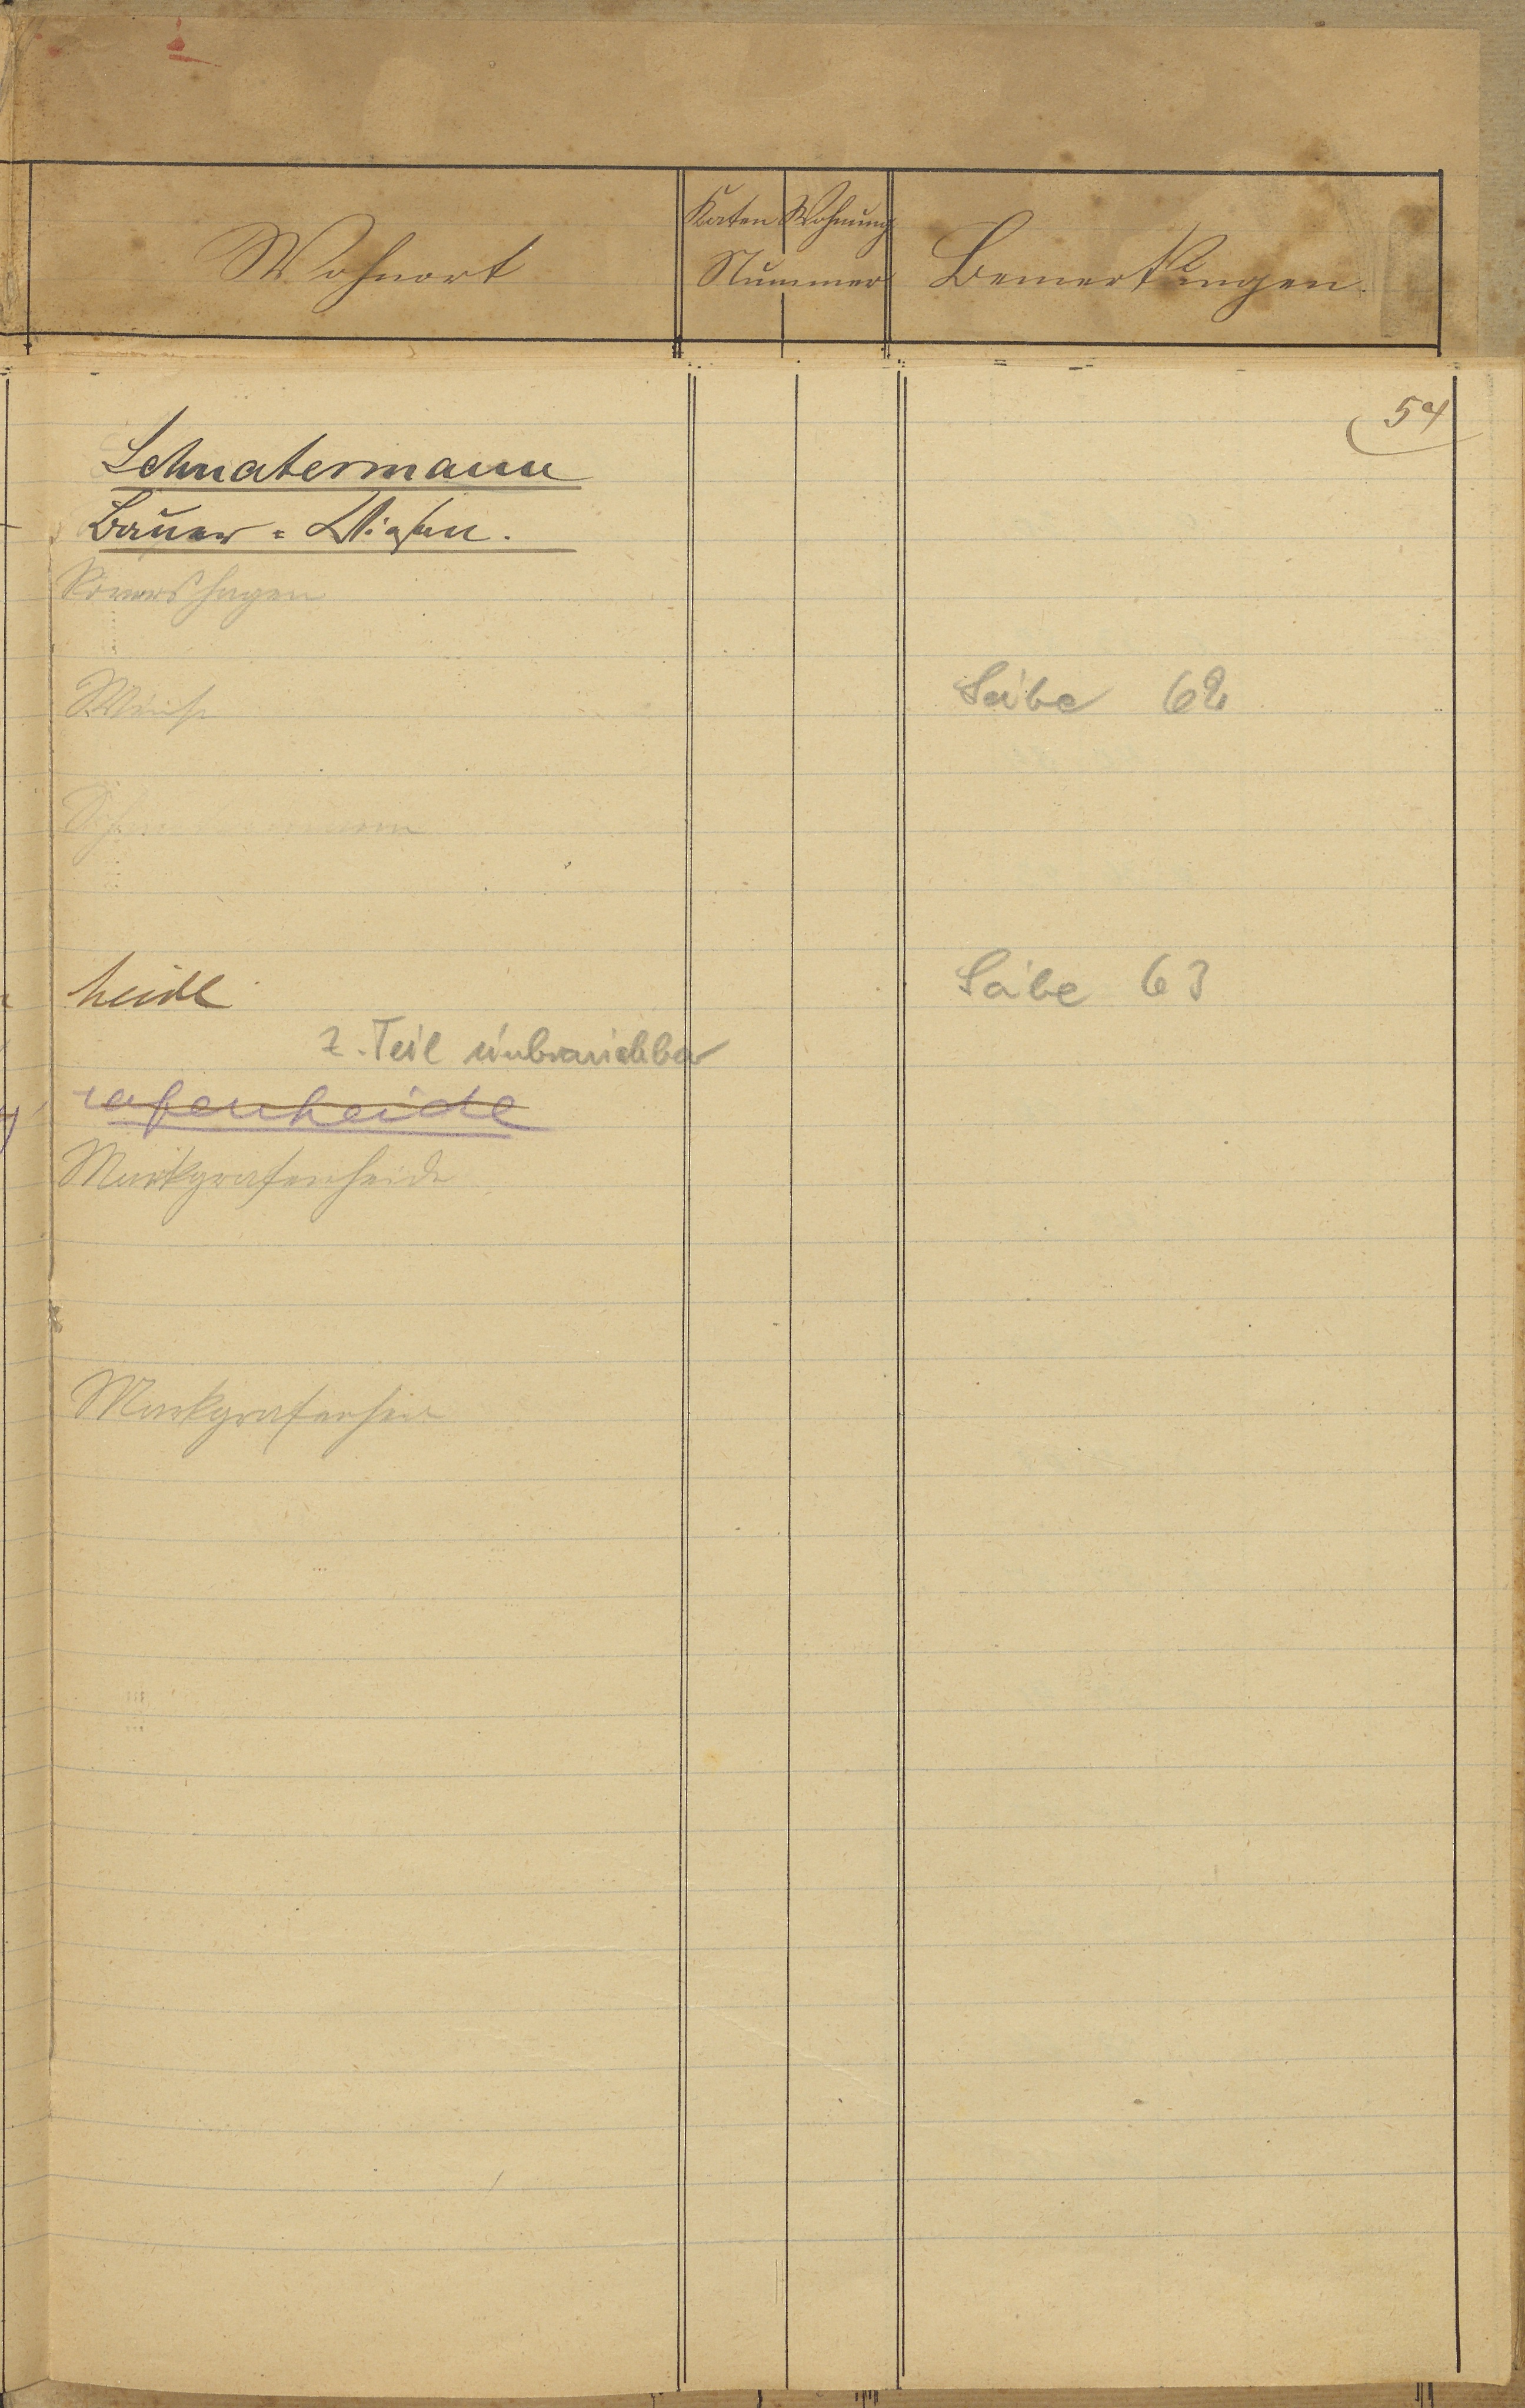 Wohnort
Katen Wohnung
Nummer
Bemerkungen.
54
Schnatermann
Bauer = Wiesen.
Rövershagen
Seite 62
heide
Seite 63
z. Teil unbrauchbar
rafenheide
Markgrafenheide
Markgrafenheide